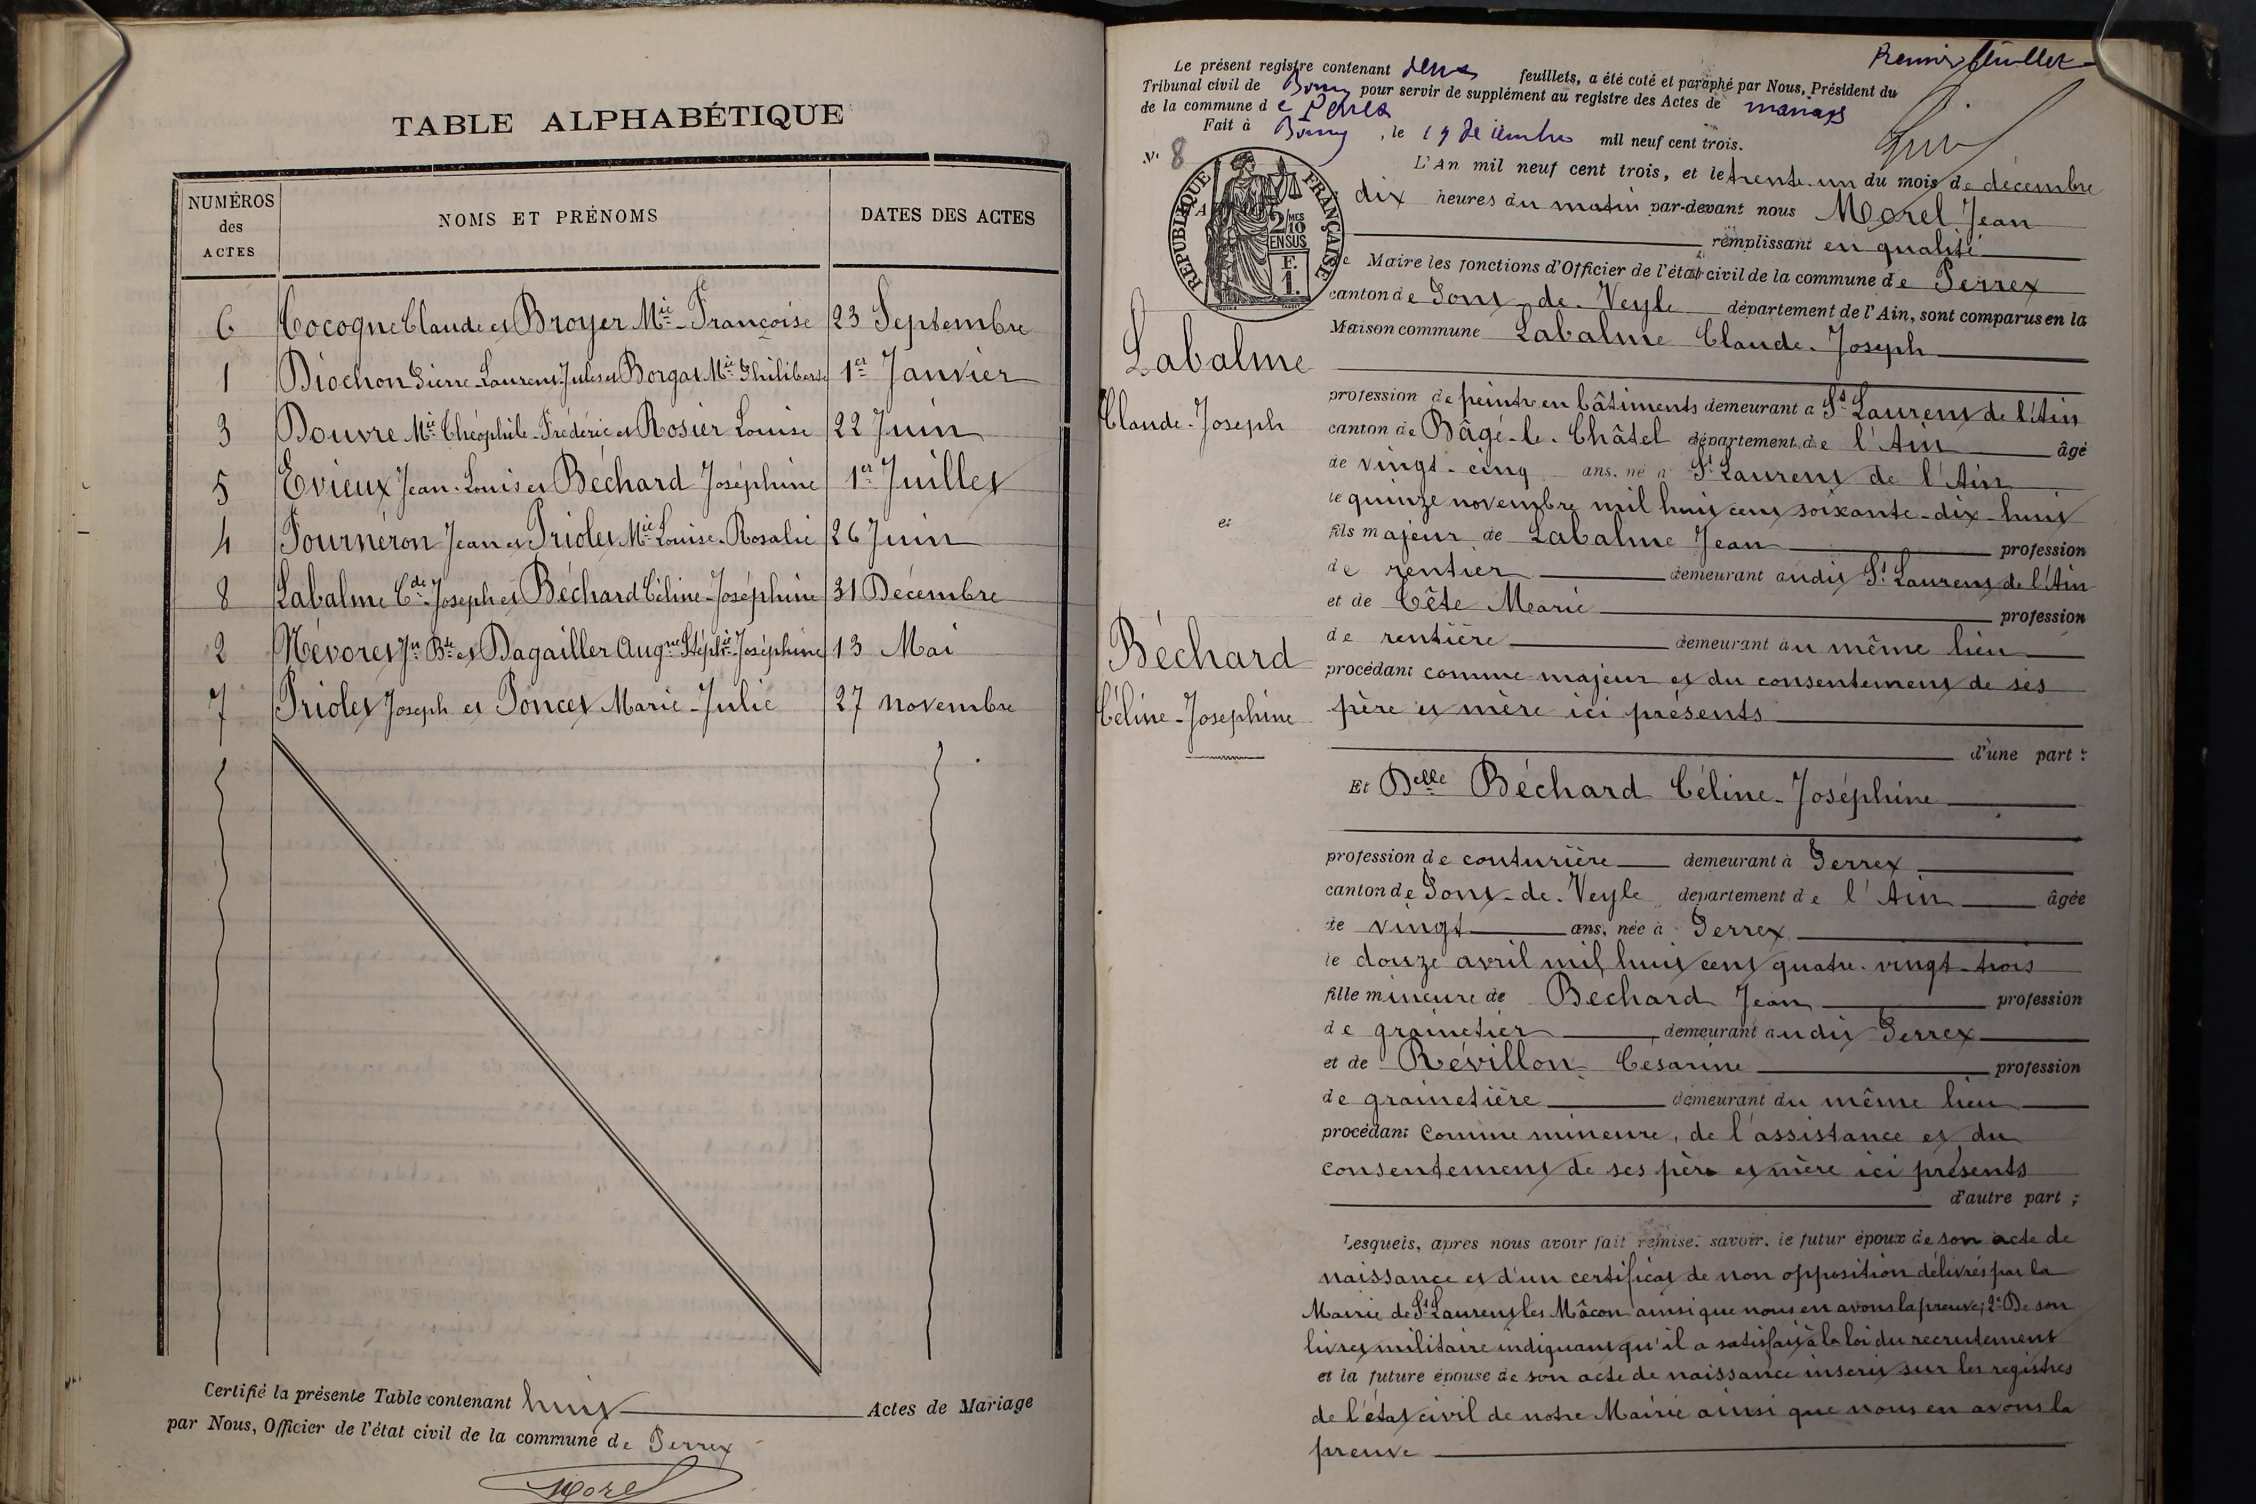 TABLE ALPHABÉTIQUE
NUMÉROS des ACTES
NOMS ET PRÉNOMS
DATES DES ACTES
6 Cocogne Claude et Broyer Mie Françoise 23 Septembre
1 Diochon Pierre-Laurent-Jules et Borgat Mie Philiberte 1er Janvier
3 Douvre Mie Théophile-Frédéric et Rosier Louise 22 Juin
5 Evieux Jean-Louis et Béchard Joséphine 1er Juillet
4 Fourneron Jean et Priolet Mie Louise-Rosalie 26 Juin
8 Labalme Cde-Joseph et Béchard Céline-Joséphine 31 Décembre
2 Névoret Jn Bte et Dagailler Augne Stéphie-Joséphine 13 Mai
7 Priolet Joseph et Poncet Marie-Julie 27 novembre
Certifié la présente Table contenant huit Actes de Mariage
par Nous, Officier de l'état civil de la commune de Perrex
Morel
Premier feuillet
Le présent registre contenant deux feuillets, a été coté et paraphé par Nous, Président du
Tribunal civil de Bourg pour servir de supplément au registre des Actes de mariages
de la commune de Perrex
Fait à Bourg, le 19 décembre mil neuf cent trois.
No 8
RÉPUBLIQUE FRANÇAISE
2 MES
10
EN SUS
F.
1.
L'An mil neuf cent trois, et le trente-un du mois de décembre
dix heures du matin par-devant nous Morel Jean
remplissant en qualité
de Maire les fonctions d'Officier de l'état civil de la commune de Perrex
canton de Pont-de-Veyle département de l'Ain, sont comparus en la
Maison commune Labalme Claude-Joseph
Labalme
Claude-Joseph
et
Béchard
Céline-Josephine
profession de peintre en bâtiments demeurant à St Laurent de l'Ain
canton de Bâgé-le-Châtel département de l'Ain âgé
de vingt-cinq ans, né à St Laurent de l'Ain
le quinze novembre mil huit cent soixante-dix-huit
fils majeur de Labalme Jean profession
de rentier demeurant audit St Laurent de l'Ain
et de Cête Marie profession
de rentière demeurant au même lieu
procédant comme majeur et du consentement de ses
père et mère ici présents
d'une part :
Et Delle Béchard Céline-Joséphine
profession de couturière demeurant à Perrex
canton de Pont-de-Veyle département de l'Ain âgée
de vingt ans, née à Perrex
le douze avril mil huit cent quatre-vingt-trois
fille mineure de Bechard Jean profession
de grainetier demeurant audit Perrex
et de Révillon Césarine profession
de grainetière demeurant au même lieu
procédant comme mineure, de l'assistance et du
consentement de ses père et mère ici présents
d'autre part ;
Lesquels, après nous avoir fait remise: savoir, le futur époux de son acte de
naissance et d'un certificat de non opposition délivrés par la
Mairie de St Laurent les Mâcon ainsi que nous en avons la preuve; 2° De son
livret militaire indiquant qu'il a satisfait à la loi du recrutement
et la future épouse de son acte de naissance inscrit sur les registres
de l'état civil de notre Mairie ainsi que nous en avons la
preuve